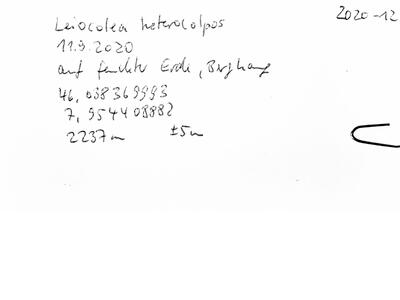 Leiocolea heterocolpos
2020-12
11.9.2020
auf feuchter Erde, Berghang
46,038369993
7,954408882
2237m ±5m